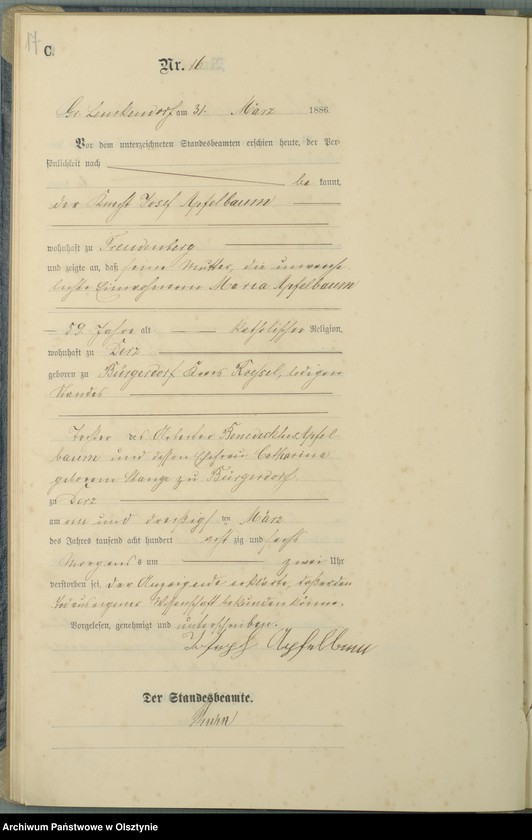 17
C.
Nr. 16
Gr. Lemkendorf am 31. März 1886.
Vor dem unterzeichneten Standesbeamten erschien heute, der Per-
sönlichkeit nach
be kannt,
der Knecht Josef Apfelbaum
wohnhaft zu Freudenberg
und zeigte an, daß seine Mutter, die unverehe-
lichte Einwohnerin Maria Apfelbaum
59 Jahre alt katholischer Religion,
wohnhaft zu Derz
geboren zu Bürgerdorf Kreis Roessel, ledigen
Standes
Tochter des Benedicktus Apfel-
baum und dessen Ehefrau Catharina
geborene Stange zu Bürgerdorf
zu Derz
am ein und dreißigsten März
des Jahres tausend acht hundert acht zig und sechs
Morgens um zwei Uhr
verstorben sei, der Anzeigende erklärte, daß er den
Tod aus eigener Wissenschaft bekunden könne.
Vorgelesen, genehmigt und unterschrieben.
Joseph Apfelbaum
Der Standesbeamte.
Archiwum Państwowe w Olsztynie